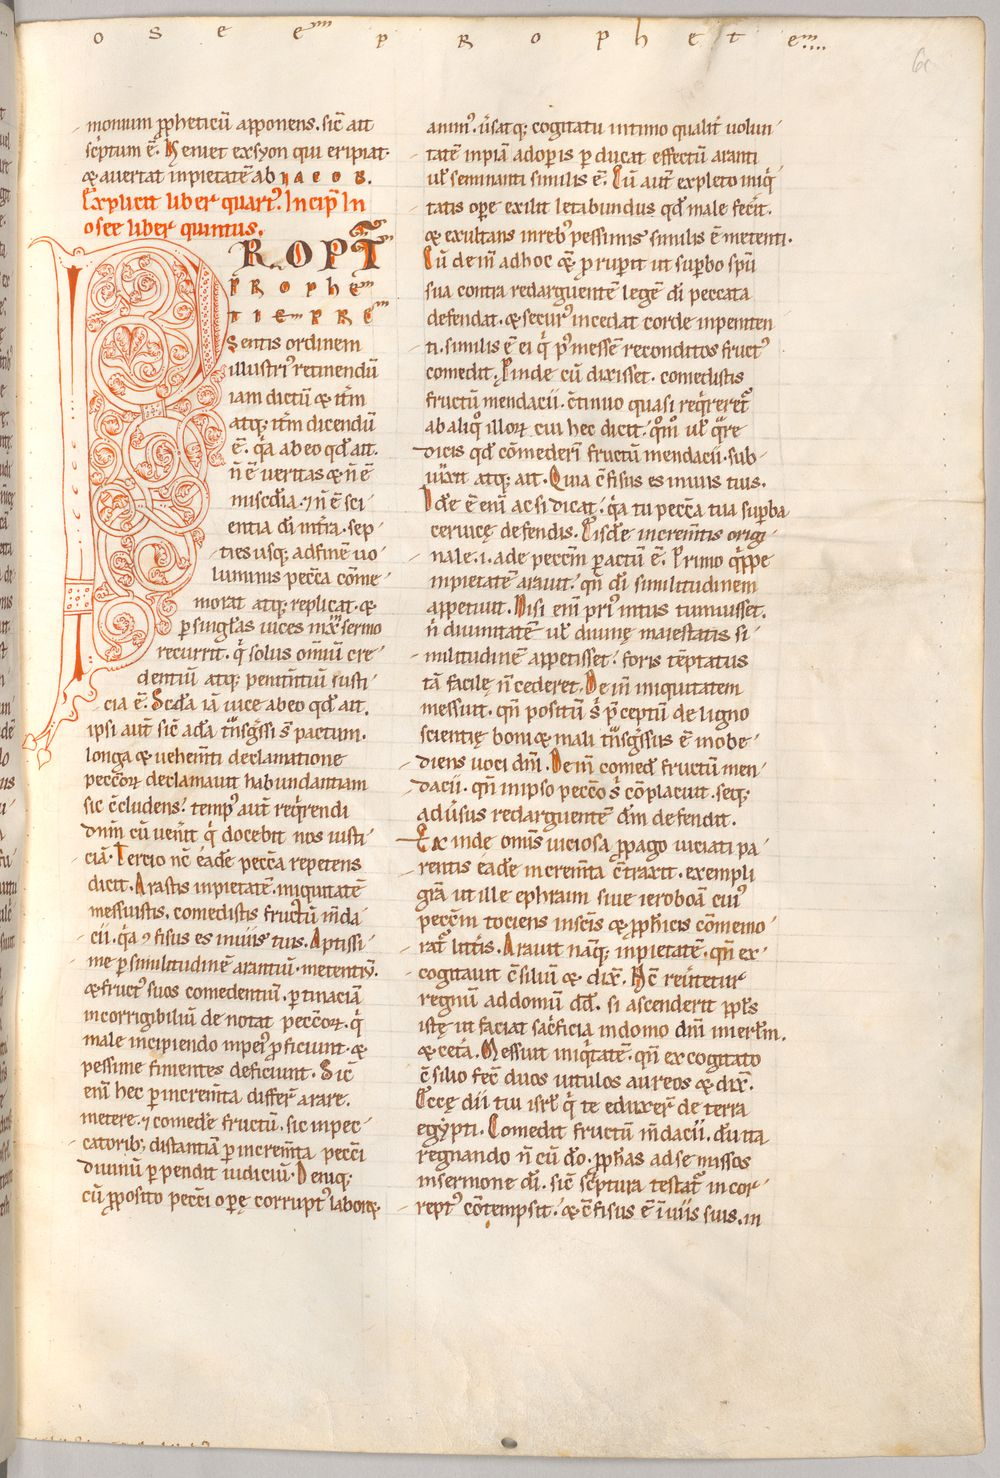 O S E E P R O P H E T E
60
monium ꝓpheticū apponens. sic̄ ait
sc̄ptum ē. Veniet ex syon qui eripiat.
& auertat inpietatē ab IACOB.
Explicit liber quart᾽. Incip̄ In
osee liber quintus.
PROPT̄
PROPHE
TIE PRE
Sentis ordinem
illustri᾽ retinendū
iam dictū & itm̄
atq; itm̄ dicendū
ē. q̄a ab eo qd̄ ait.
n̄ ē ueritas & n̄ ē
miscd̄ia. ⁊ n̄ ē sci
entia dī in tr̄a. sep
ties usq; ad finē uo
luminis pecc̄a cōme
morat atq; replicat. &
ꝑ singl̄as uices mixt̄ sermo
recurrit. q̄ solus om̄iū cre
dentiū atq; penitn̄tiū iusti
cia ē. Scd̄a iā uice ab eo qd̄ ait.
ipsi aut̄ sic̄ adā tn̄sgs̄si s̄ pactum.
longa & uehem̄ti declamatione
pecc̄oꝝ declamauit habundantiam
sic c̄cludens. temp᾽ aut̄ req̄rendi
dnm̄ cū uen̄it q̄ docebit nos iusti
ciā. Tercio nc̄ eadē pecc̄a repetens
dicit. Arastis inpietatē. iniquitatē
messuistis. comedistis fructū m̄da
cii. q̄a ꝯfisus es in uiis tuis. Aptissi
me ꝑ similitudinē arantiū. metentiū.
& fruct᾽ suos comedentiū. ꝑtinaciā
incorrigibiliū denotat pecc̄oꝝ. q̄
male incipiendo in pei᾽ ꝓficiunt. &
pessime finientes deficiunt. Sic̄
enī hec ꝑ increm̄ta differ̄ arare.
metere. ⁊ comedē fructū. sic in pec
catorib; distantiā ꝑ increm̄ta pecc̄i
diuinū ꝑpendit iudiciū. Deniq;
cū ꝓposito pecc̄i opę corrupt᾽ laboꝝ
anim᾽. ūsatq; cogitatu intimo qualit̄ uolun
tatē inpiā ad opis ꝑducat effectū aranti
ul̄ seminanti similis ē. Cū aut̄ expleto iniq̄
tatis opere exilit letabundus qd̄ male fecit.
& exultans in reb᾽ pessimis similis ē metenti.
Cū dein̄ ad hoc q̄ꝫ prūpit ut supbo spū
sua contra redarguentē legē dī peccata
defendat. & secur᾽ incedat corde inpeniten
ti. similis ē ei q̄ p᾽ messē reconditos fruct᾽
comedit. Proinde cū dixisset. comedistis
fructū mendacii. c̄tinuo quasi req̄reret̄
ab aliq᾽ illoꝝ cui hec dicit. qm̄o ul̄ q̄re
dicis qd̄ cōmederī fructū mendacii. sub
iūxit atq; ait. Quia c̄fisus es in uiis tuis.
Idē ē enī ac si dicat. q̄a tu pecc̄a tua supba
ceruicę defendis. Eisdē increm̄tis origi
nale. i. ade pecc̄m ꝑactū ē. Primo q̄ppe
inpietatē arauit. qn̄ dī similitudinem
appetiuit. Nisi enī pri᾽ intus tumuisset.
n̄ diuinitatē ul̄ diuinę maiestatis si
militudinē appetisset. foris tēptatus
tā facile n̄ cederet. Dein̄ iniquitatem
messuit. qn̄ positū s̄ p̄ceptū de ligno
scientię boni & mali tn̄sgs̄sus ē inobe
diens uoci dnī. Dein̄ comed̄ fructū men
dacii. qn̄ in ipso pecc̄o s̄ cōplacuit. seq;
adūsus redarguentē dm̄ defendit.
Exinde om̄is uiciosa ꝓpago uiciati pa
rentis eadē increm̄ta c̄traxit. exempli
grā ut ille ephraim siue ieroboā cui᾽
pecc̄m tociens in sc̄is & ꝓph̄icis cōmemo
rat̄ litt̄is. Arauit nāq; inpietatē. qn̄ ex
cogitauit c̄siliū & dix̄. Nc̄ reūtetur
regnū ad domū dd̄. si ascenderit ppl̄s
istę ut faciat sac̄ficia in domo dnī in ierl̄m.
& cet̄a. Messuit iniq̄tatē. qn̄ excogitato
c̄silio fec̄ duos uitulos aureos & dix̄.
Eccę dii tui isrl̄ q̄ te eduxer̄ de terra
egypti. Comedit fructū m̄dacii. dū ita
regnando n̄ cū dō. ꝓph̄as ad se missos
in sermone dī. sic̄ sc̄ptura testat̄ in cor
rept᾽ cōtempsit. & c̄fisus ē ī uiis suis. in